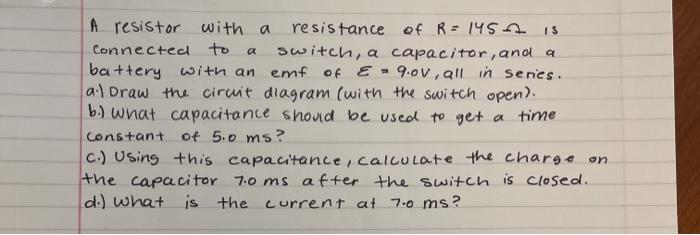 A resistor with a resistance of R = 145 Ω is
connected to a switch, a capacitor, and a
battery with an emf of ε = 9.0V, all in series.
a.) Draw the circuit diagram (with the switch open).
b.) What capacitance should be used to get a time
constant of 5.0 ms?
c.) Using this capacitance, calculate the charge on
the capacitor 7.0 ms after the switch is closed.
d.) What is the current at 7.0 ms?